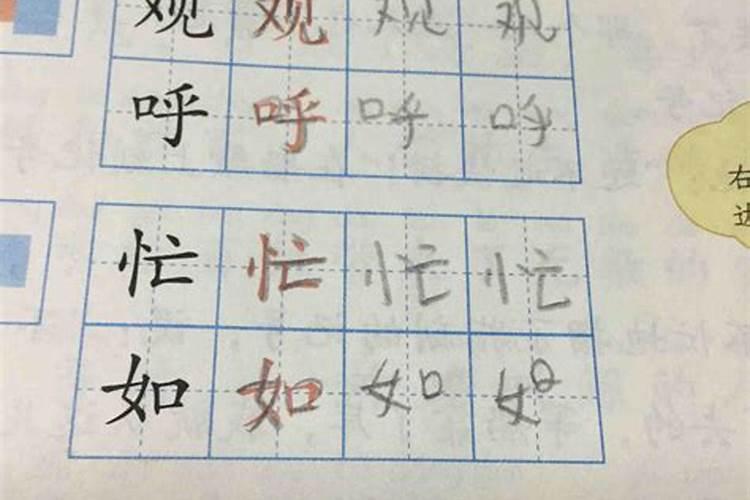 观 观 观 观
呼 呼 呼 呼
忙 忙 忙 忙
如 如 如 如
右
边